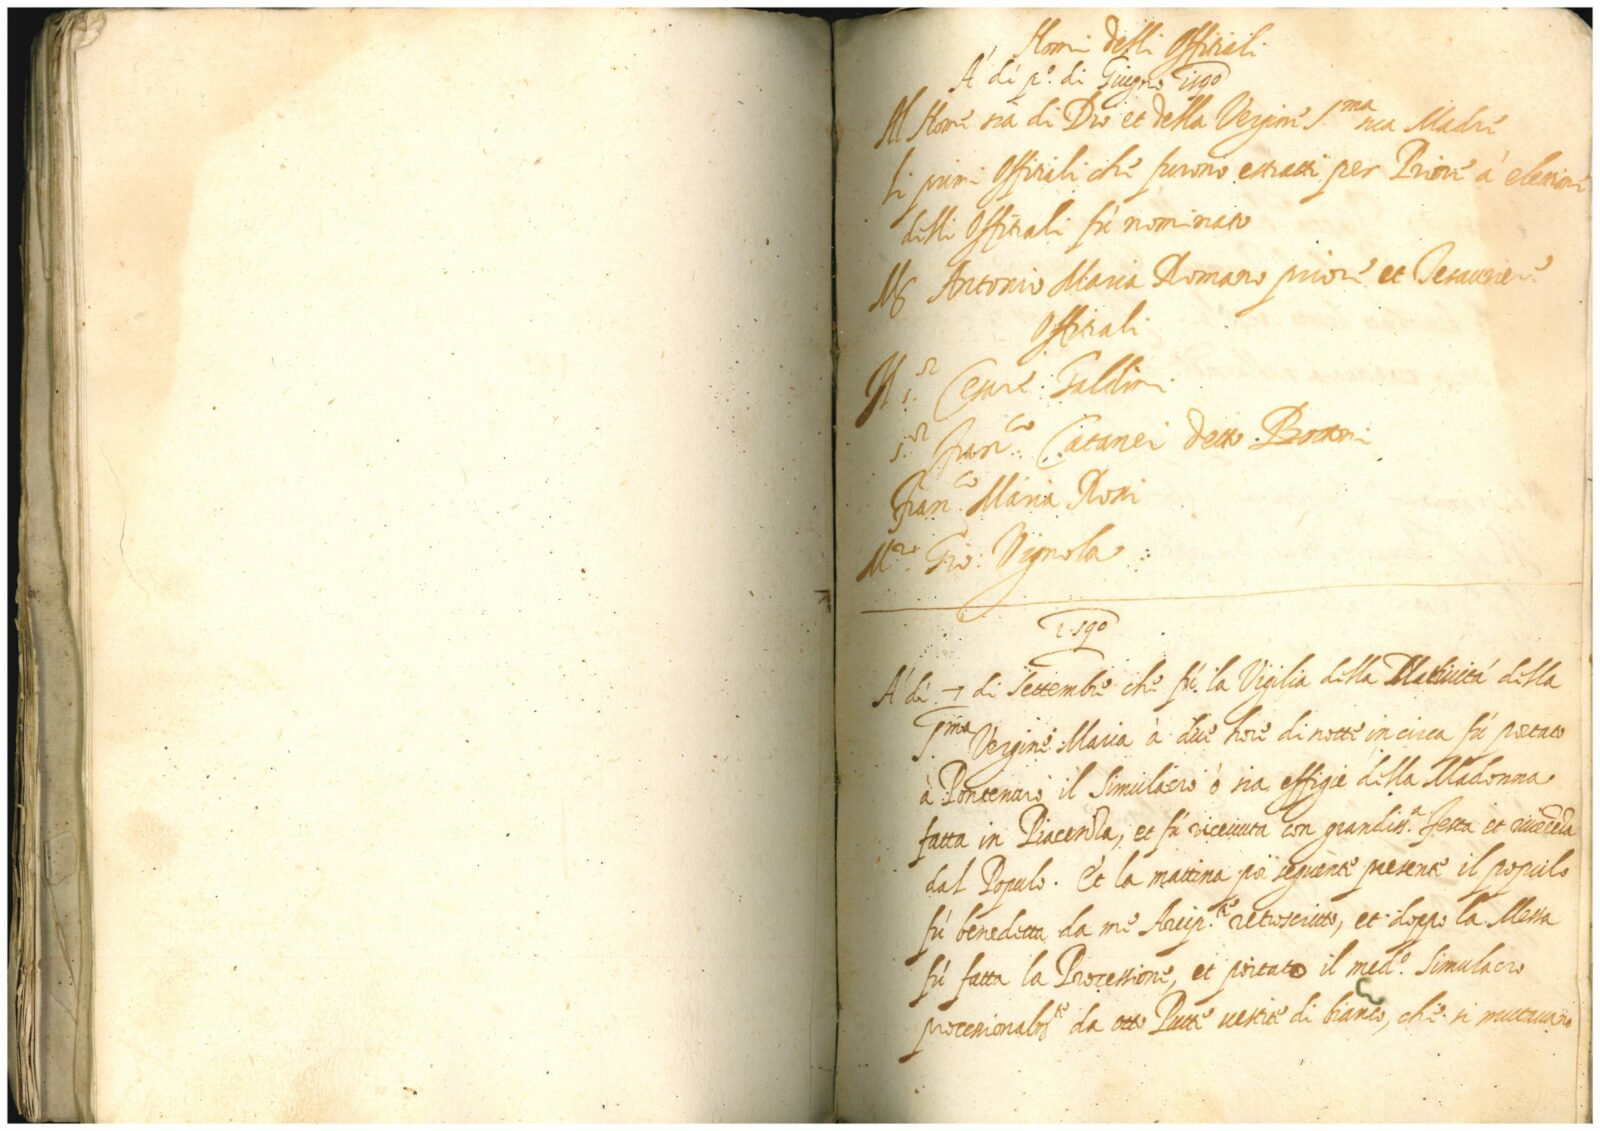 Nomi delli Offitiali
A' dì p.º di Giugno 1590
Al Nome sia di Dio et della Vergine S.ma sua Madre
Li primi Offitiali che furono estratti per Priore à elettione
delli Offitiali fù nominato
Ms Antonio Maria Romano priore et Tesauriere
Offitiali
Il S.or Cesare Galdini
S.or Fran.co Catanei detto Bottoni
Fran.co Maria Rossi
M.ro Gio: Vignola
1590
A' dì 7 di Settembre che fù la Vigilia della Natività della
S.ma Vergine Maria à due hore di notte in circa fù portato
à Pontenuro il Simulacro ò sia effigie della Madonna
fatta in Piacenza, et fù ricevuta con grandiss.a festa et
dal Populo. Et la mattina poi seguente presente il populo
fù benedetta da me Arcip.te et doppo la Messa
fù fatta la Processione, et portato il med.o Simulacro
processionalm.te da otto Putte vestite di bianco, che si mutavano